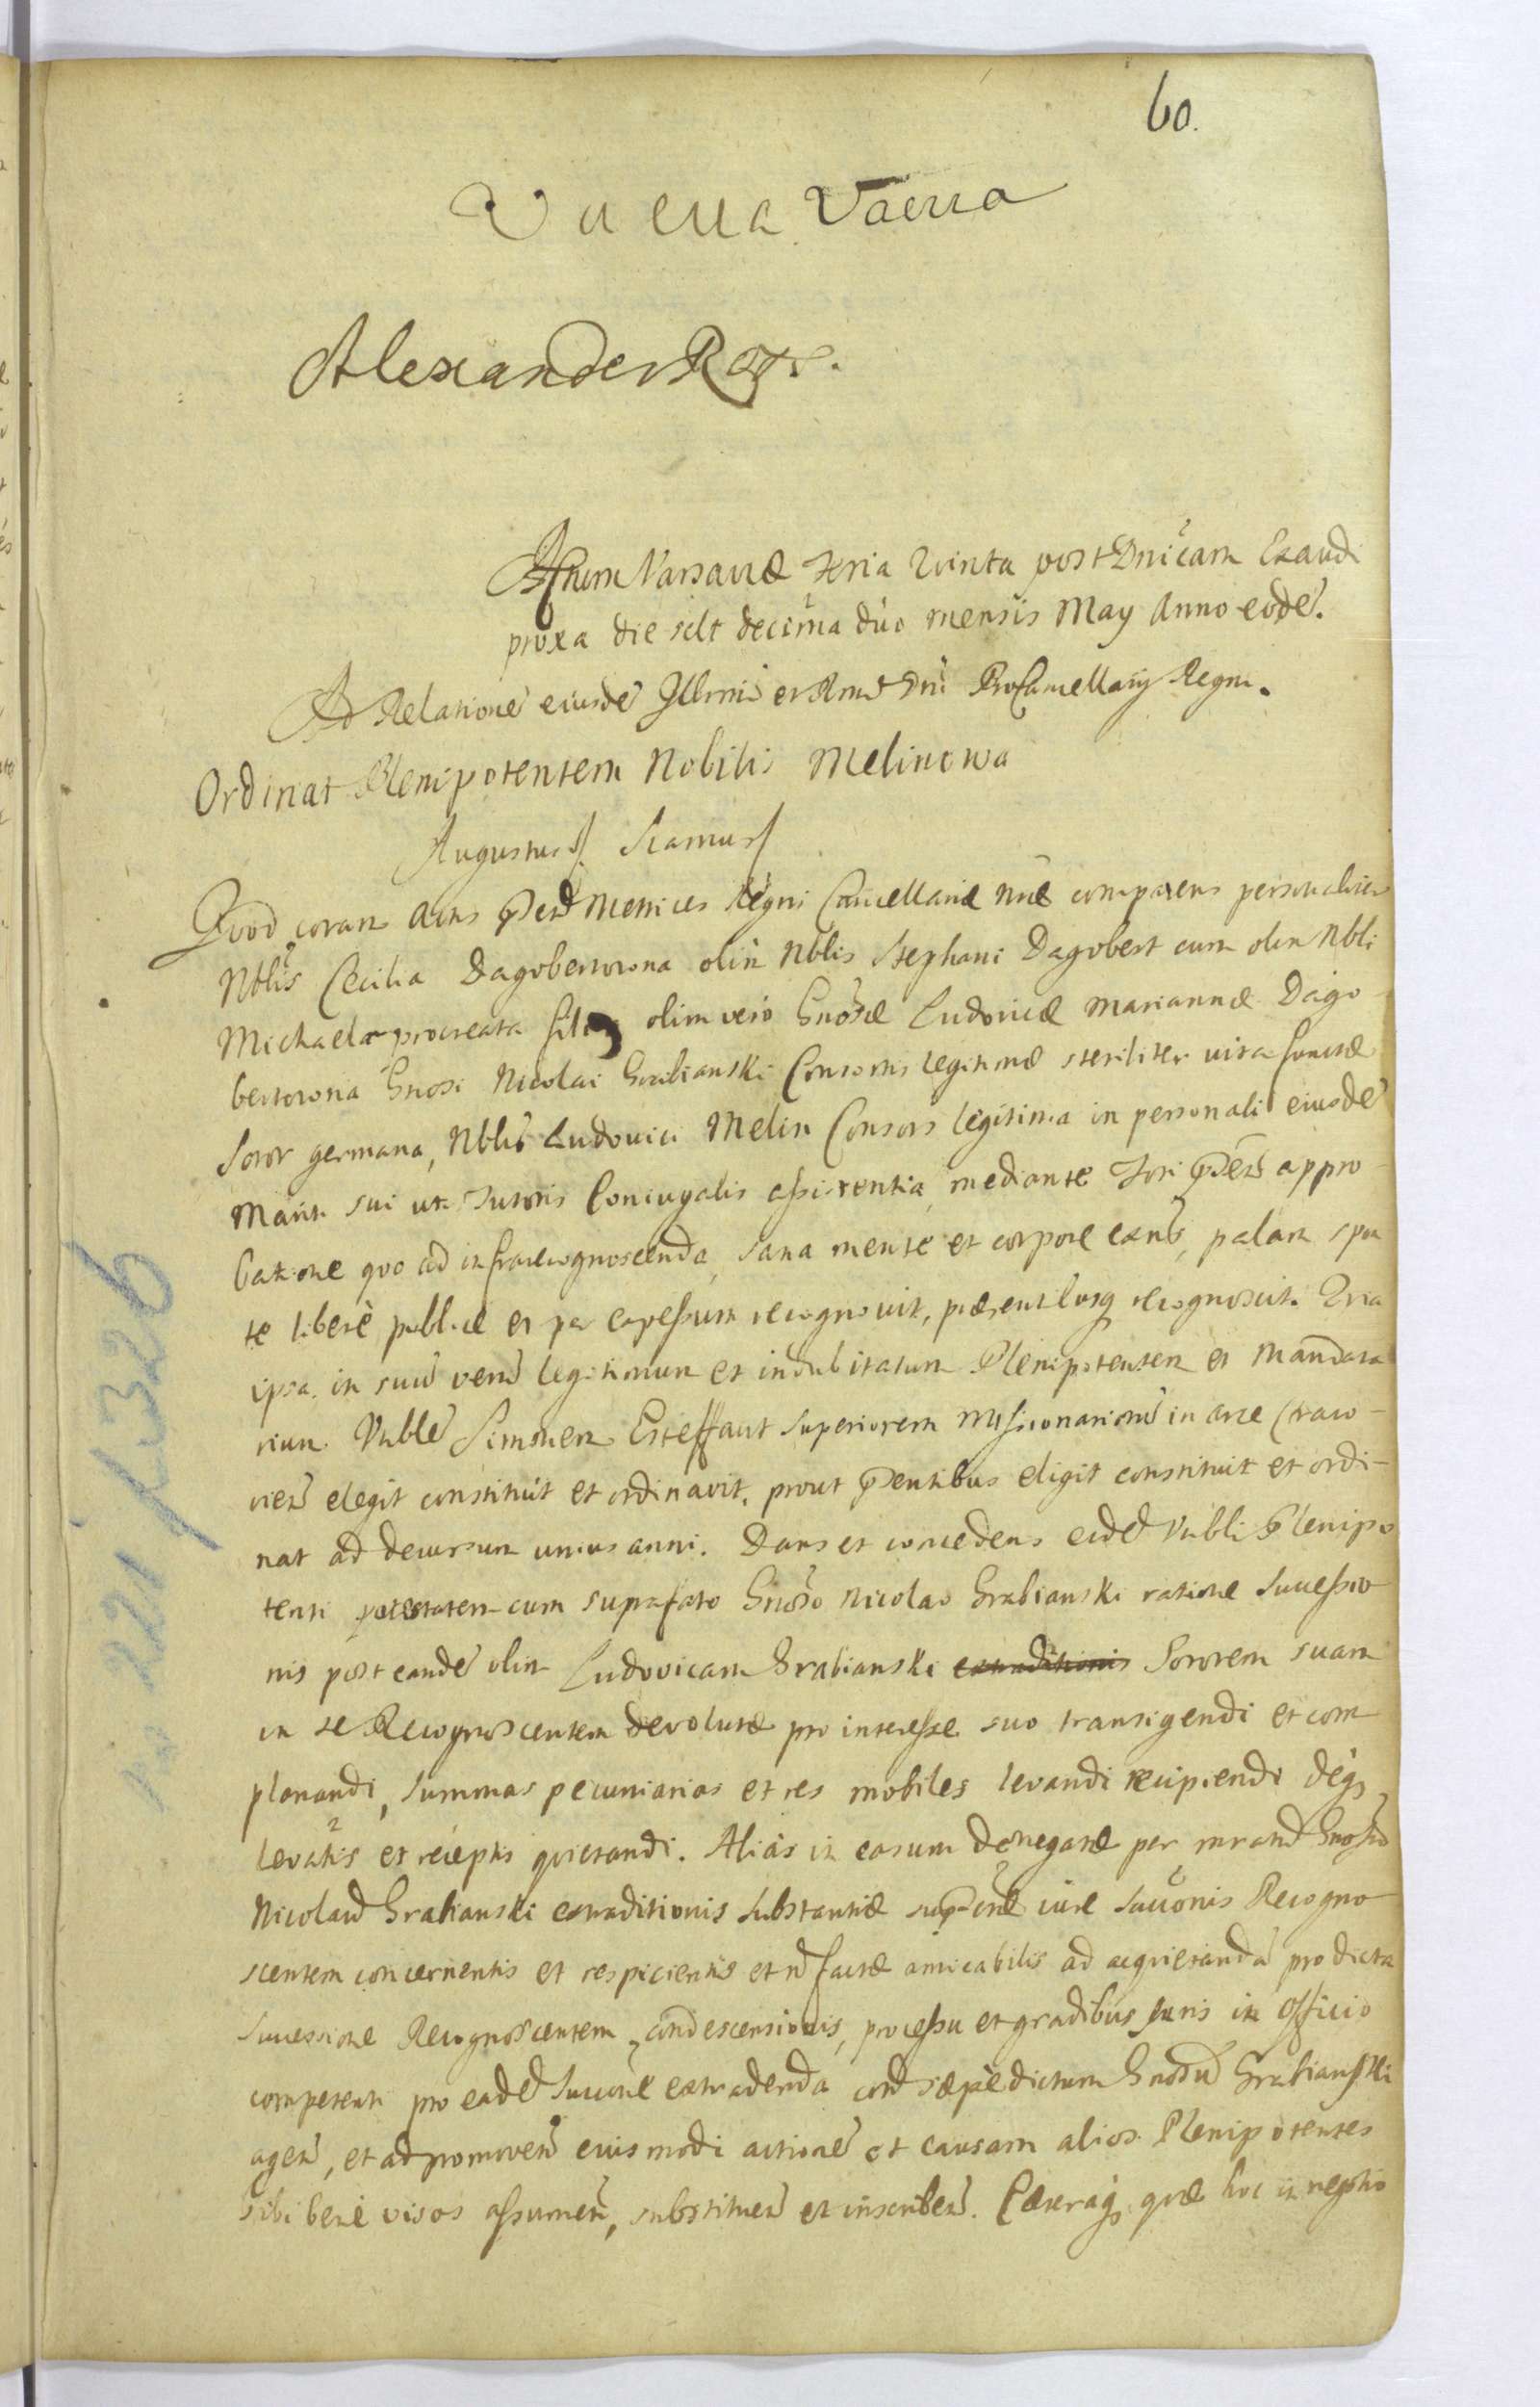 60.
Vacua Vacua
Alexander Rex.
Actum Varsaviæ Feria Quinta post Dnicam Exaudi
proxa die sclt decima duo mensis May Anno eode.
Ad Relatione eiusde Illmi et Rmi Dni ProCancellarij Regni.
Ordinat Plenipotentem Nobilis Melinowa
Augustus
Quod coram Actis Pntibus Metrices Regni Cancellariæ mæ comparens personaliter
Nblis Cecilia Dagobertowna olim Nblis Stephani Dagobert cum olim Nbli
Michaela procreata filia olim vero Gnosæ Ludovicæ Mariannæ Dago-
bertowna Gnosi Nicolai Grabianski Consortis legitimæ steriliter vita functæ
Soror germana, Nblis Ludovici Melin Consors legitima in personali eiusde
Mariti sui uti Tutoris Coniugalis assistentia, mediante Fori Pntis appro-
batione quo ad infrarecognoscenda, sana mente et corpore exns, palam spon
te liberè publice et per expessum recognovit, præsentibusq recognoscit. Quia
ipsa in suu veru legitimum et indubitatum Plenipotentem et Mandata
rium Vnble Simonem Esteffaut Superiorem Missionarioru in arce Craco-
vien elegit constituit et ordinavit, prout Pntibus eligit constituit et ordi-
nat ad decursum unius anni. Dans et concedens eide Vnbli Plenipo
tenti potestatem cum suprafato Gnoso Nicolao Grabianski ratione Successio
nis post eande olim Ludovicam Grabianski extraditionis Sororem suam
in se Recognoscentem devolutæ pro interesse suo transigendi et com
planandi, summas pecuniarias et res mobiles levandi recipiendi deq
levatis et receptis quietandi. Alias in casum denegatæ per mratu Gnosu
Nicolau Grabianski extraditionis substantiæ iure Saccionis Recogno
scentem concernentis et respicientis et n factæ amicabilis ad acquietanda pro dicta
Successione Recognoscentem condescensionis, processu et gradibus Juris in Officio
competenti pro eade Succone extradenda con sæpedictum Gnosu Grabianski
agen, et ad promoven eiusmodi actione et causam alios Plenipotentes
sibi bene visos assumen, substituen et inscriben. Cæteraq quæ hoc in negotio
221 / 1326